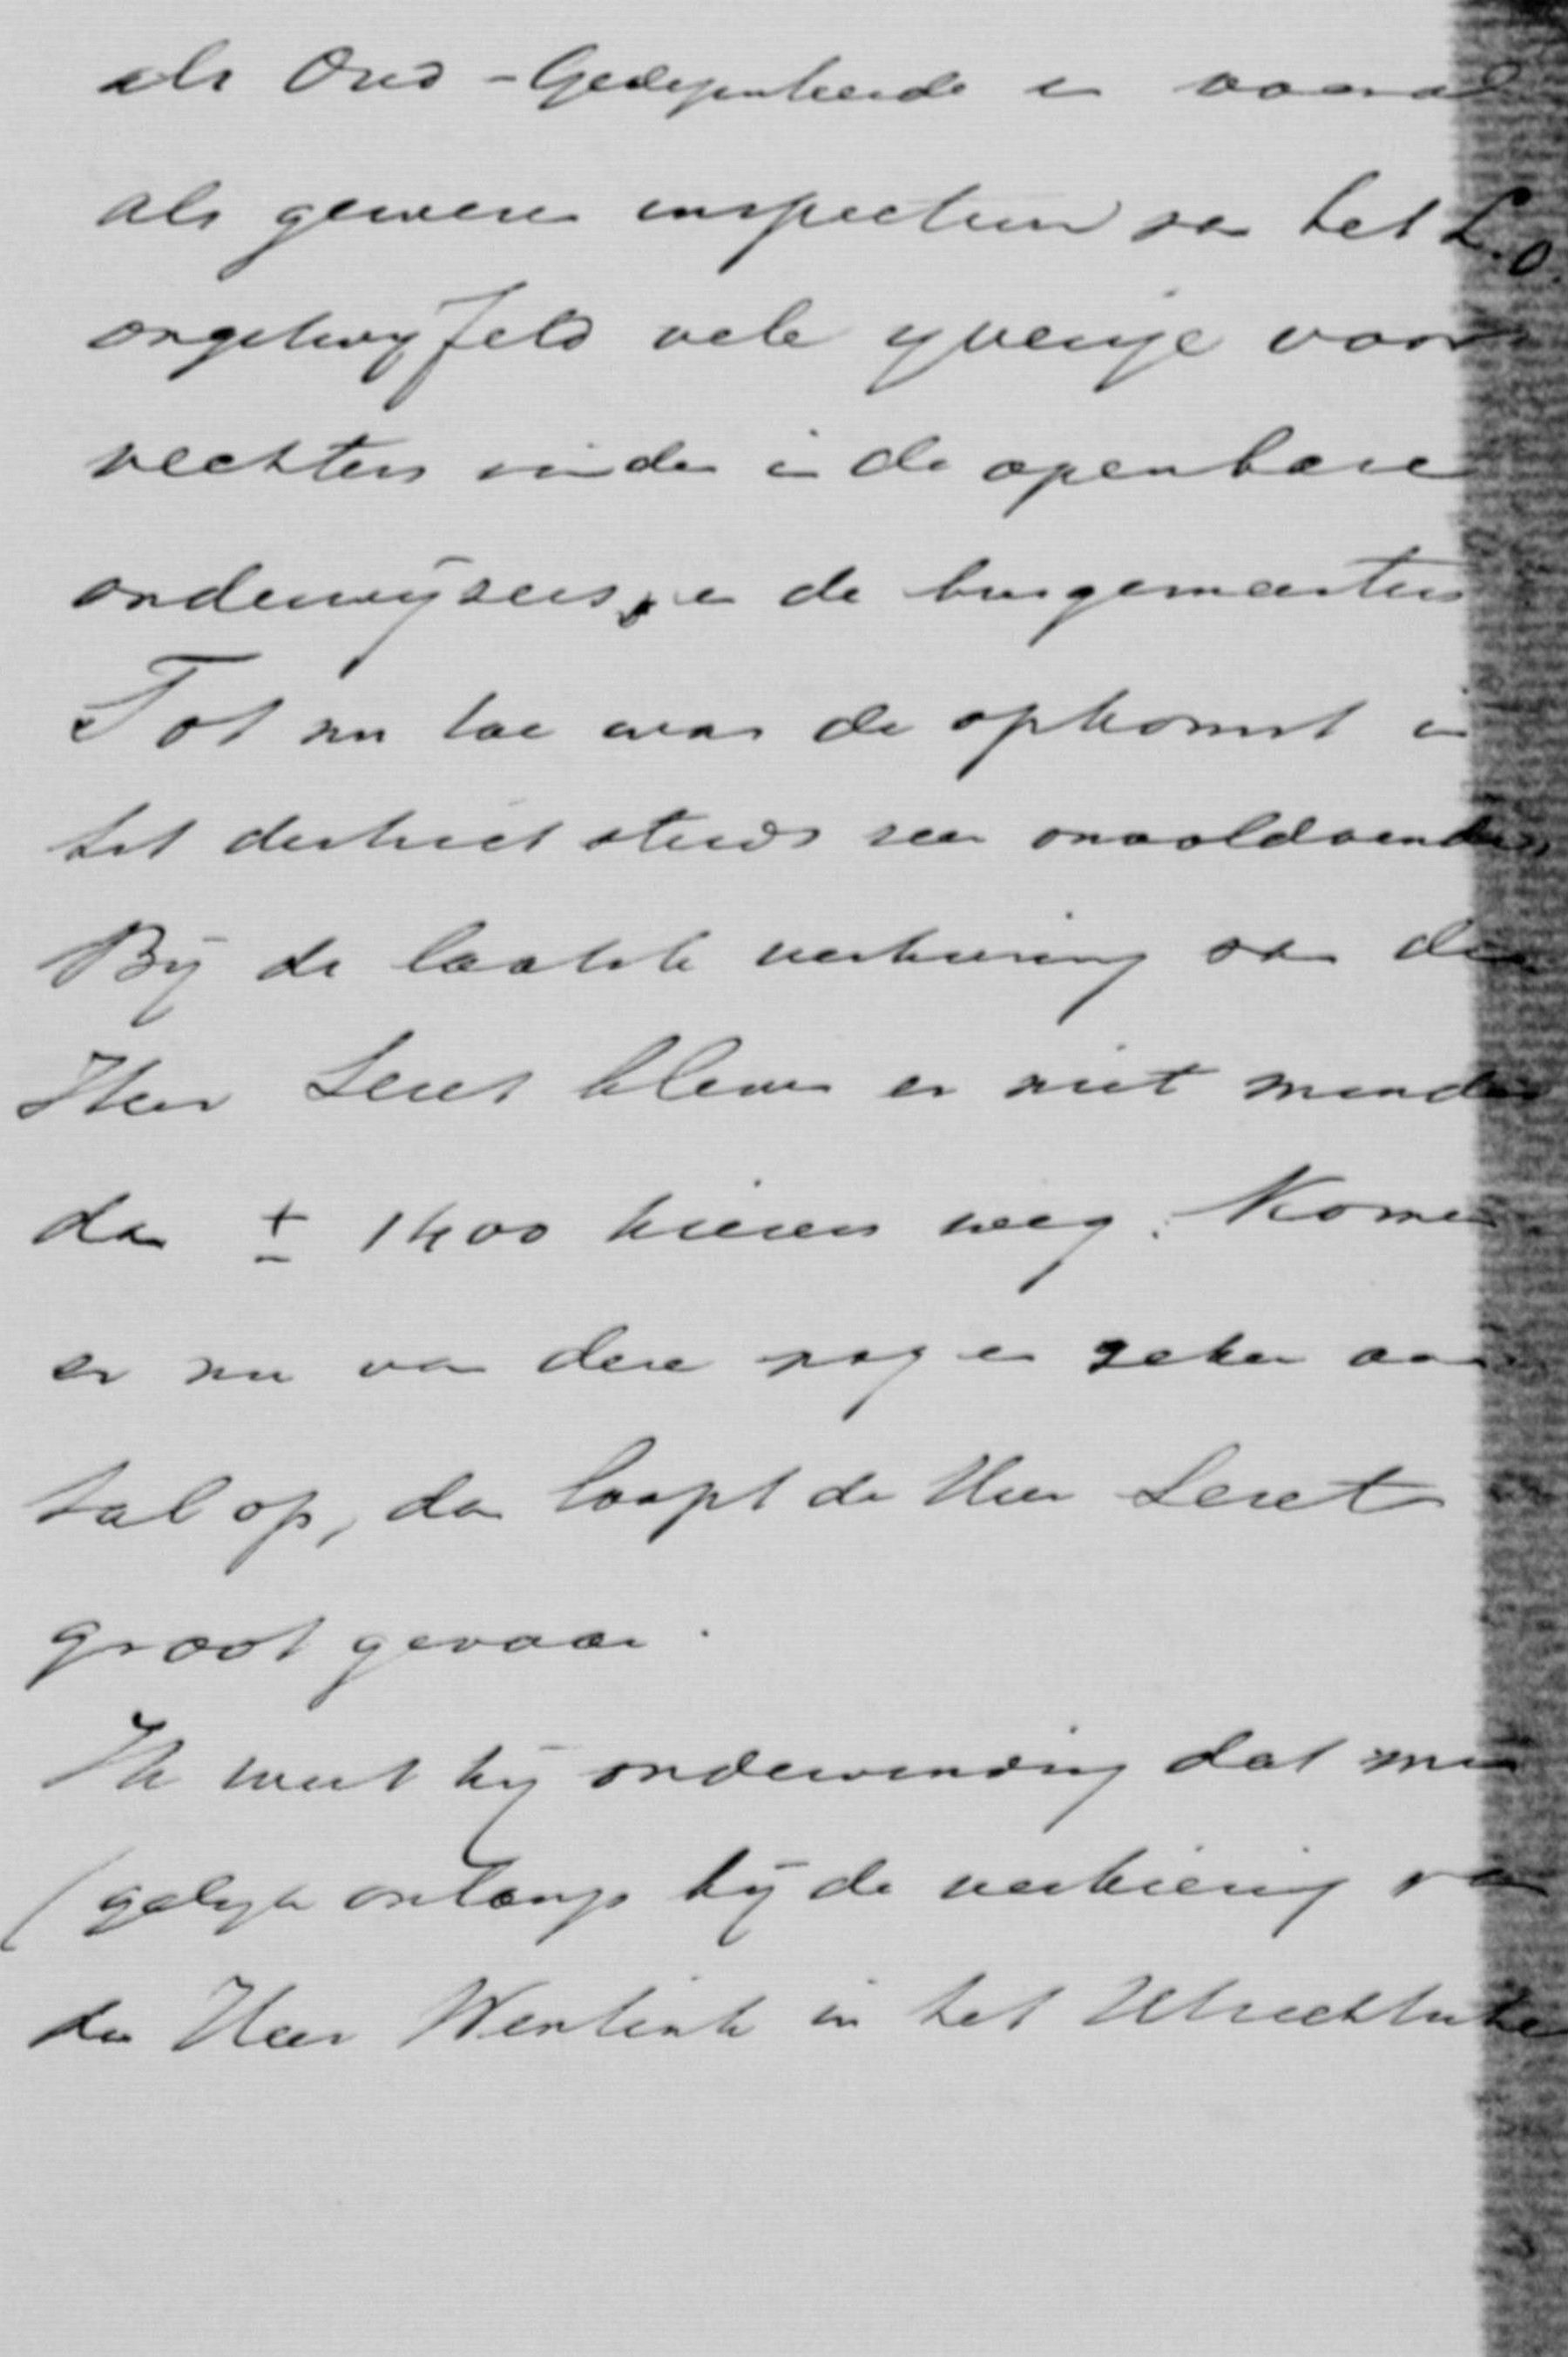 als Oud-Gedeputeerde en vooral
als gewezen inspecteur van het L.O.
ongetwijfeld vele ijverige voor
vechters vinden in de openbare
onderwijzers, en de burgemeesters
Tot nu toe was de opkomst in
het district steeds zeer onvoldoende,
Bij de laatste verkiezing van den
Heer Seret bleven er niet minder
dan ± 1400 kiezers weg. Komen
er nu van deze nog een zeker aan
tal op, dan loopt de Heer Seret
groot gevaar.
Ik weet bij ondervinding dat men
(gelijk onlangs bij de verkiezing van
den Heer in het Utrechtsche